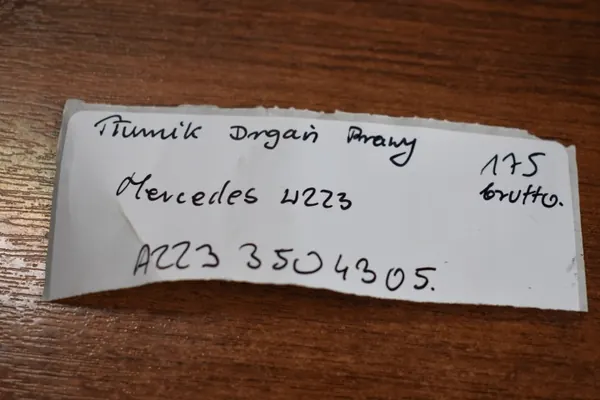 Tłumik Drgań Prawy
175
brutto.
Mercedes W223
A223 3504305.